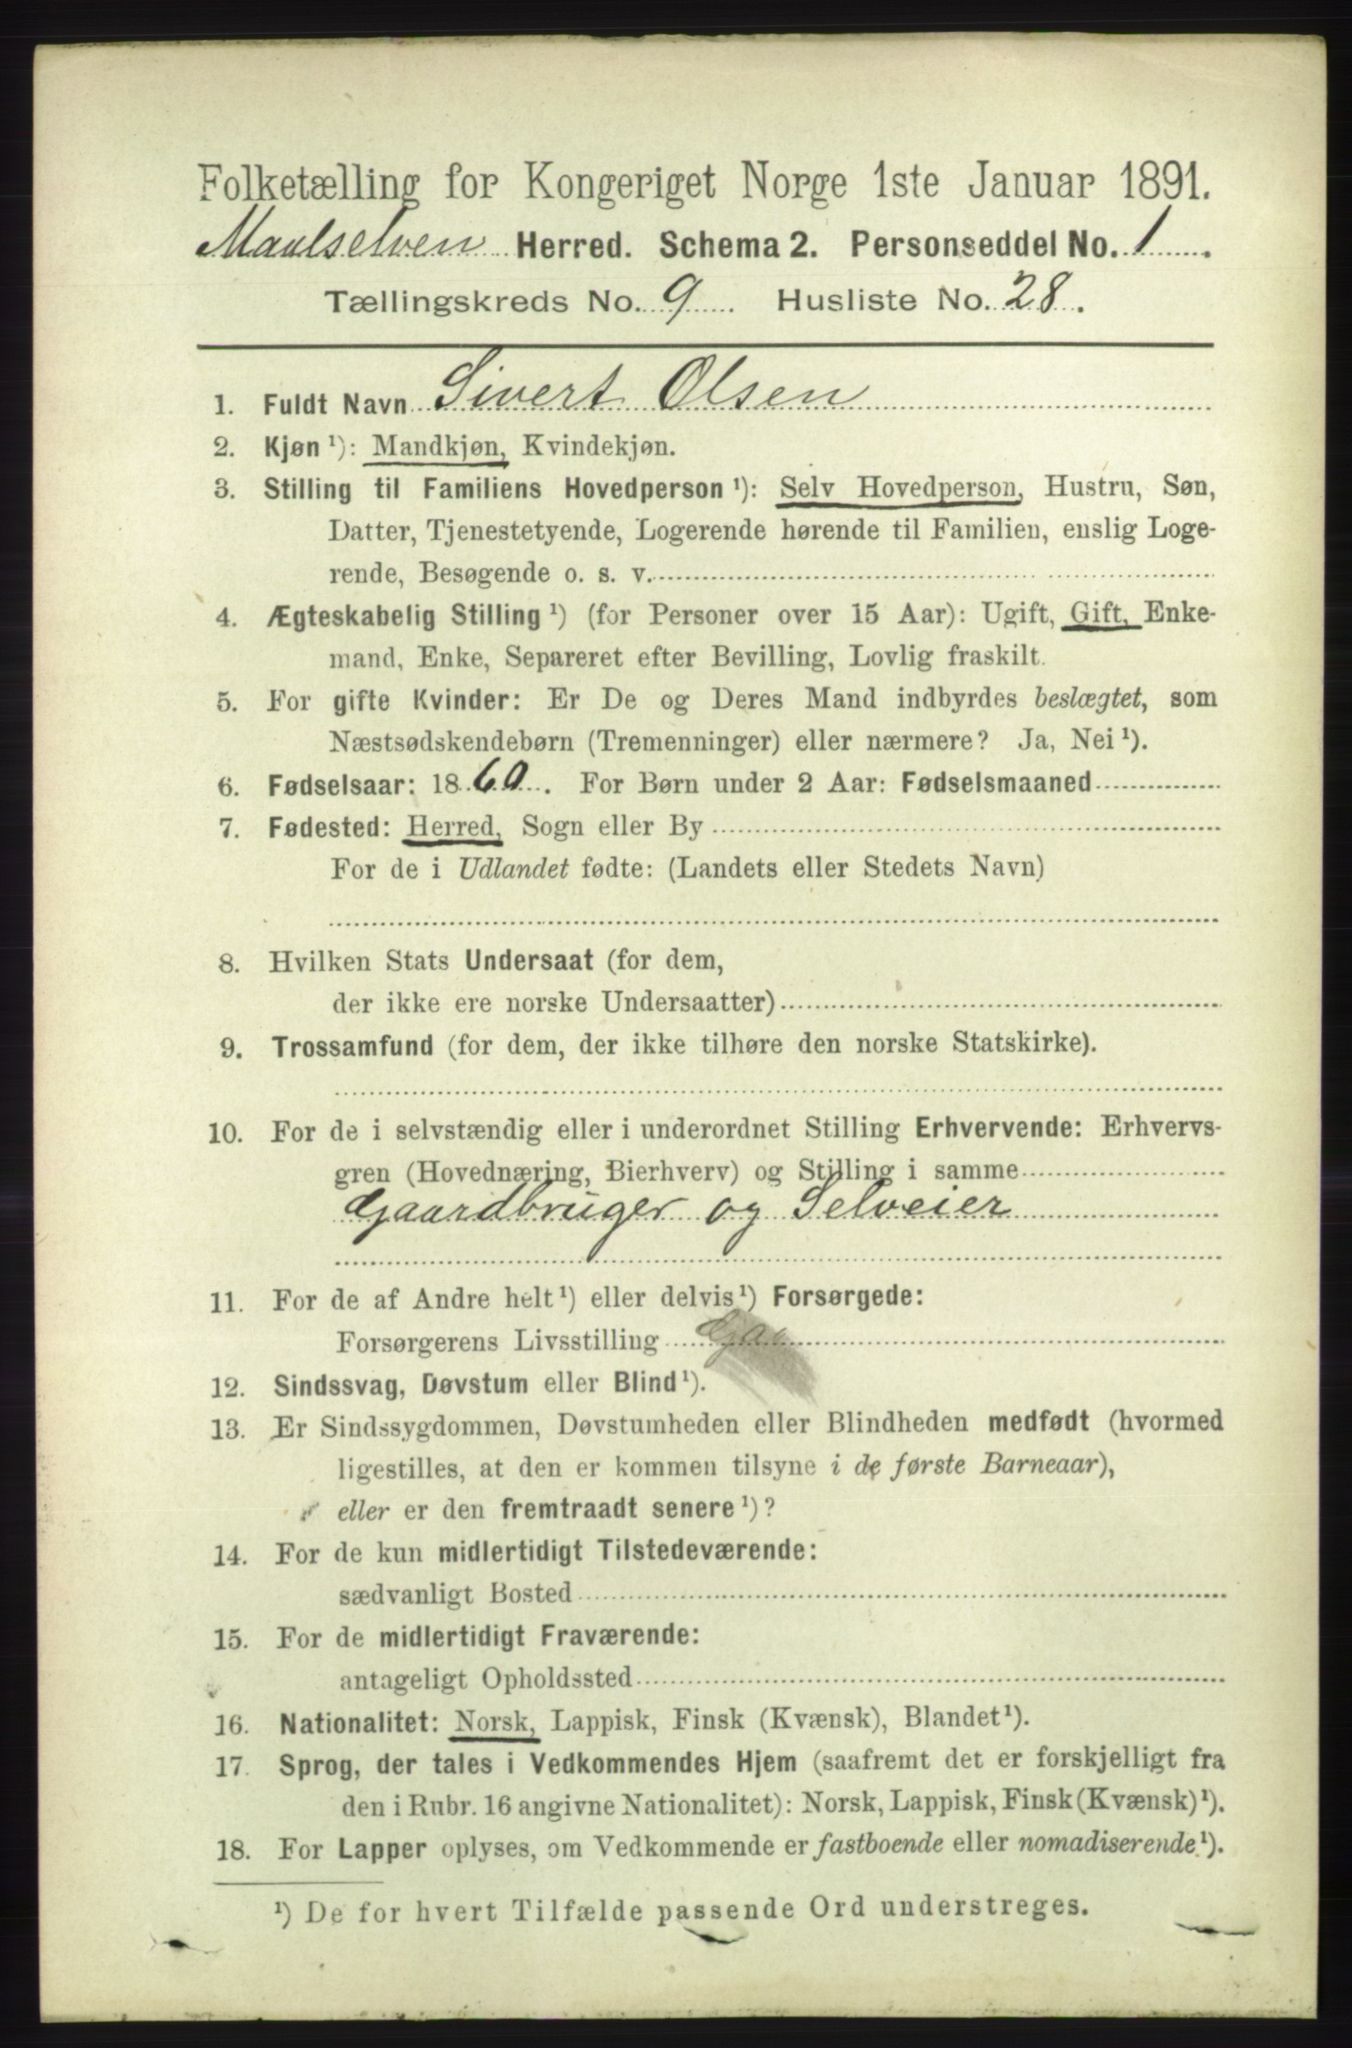 Folketælling for Kongeriget Norge 1ste Januar 1891.
Maalselven Herred. Schema 2. Personseddel No. 1.
Tællingskreds No. 9. Husliste No. 28.
1. Fuldt Navn Sivert Olsen
2. Kjøn ¹): Mandkjøn, Kvindekjøn.
3. Stilling til Familiens Hovedperson ¹): Selv Hovedperson, Hustru, Søn,
Datter, Tjenestetyende, Logerende hørende til Familien, enslig Loge-
rende, Besøgende o. s. v.
4. Ægteskabelig Stilling ¹) (for Personer over 15 Aar): Ugift, Gift, Enke-
mand, Enke, Separeret efter Bevilling, Lovlig fraskilt.
5. For gifte Kvinder: Er De og Deres Mand indbyrdes beslægtet, som
Næstsødskendebørn (Tremenninger) eller nærmere? Ja, Nei ¹).
6. Fødselsaar: 1860. For Børn under 2 Aar: Fødselsmaaned
7. Fødested: Herred, Sogn eller By
For de i Udlandet fødte: (Landets eller Stedets Navn)
8. Hvilken Stats Undersaat (for dem,
der ikke ere norske Undersaatter)
9. Trossamfund (for dem, der ikke tilhøre den norske Statskirke).
10. For de i selvstændig eller i underordnet Stilling Erhvervende: Erhvervs-
gren (Hovednæring, Bierhverv) og Stilling i samme
Gaardbruger og Selveier
11. For de af Andre helt ¹) eller delvis ¹) Forsørgede:
Forsørgerens Livsstilling Gaa
12. Sindssvag, Døvstum eller Blind ¹).
13. Er Sindssygdommen, Døvstumheden eller Blindheden medfødt (hvormed
ligestilles, at den er kommen tilsyne i de første Barneaar),
eller er den fremtraadt senere ¹)?
14. For de kun midlertidigt Tilstedeværende:
sædvanligt Bosted
15. For de midlertidigt Fraværende:
antageligt Opholdssted
16. Nationalitet: Norsk, Lappisk, Finsk (Kvænsk), Blandet ¹).
17. Sprog, der tales i Vedkommendes Hjem (saafremt det er forskjelligt fra
den i Rubr. 16 angivne Nationalitet): Norsk, Lappisk, Finsk (Kvænsk) ¹).
18. For Lapper oplyses, om Vedkommende er fastboende eller nomadiserende ¹).
¹) De for hvert Tilfælde passende Ord understreges.